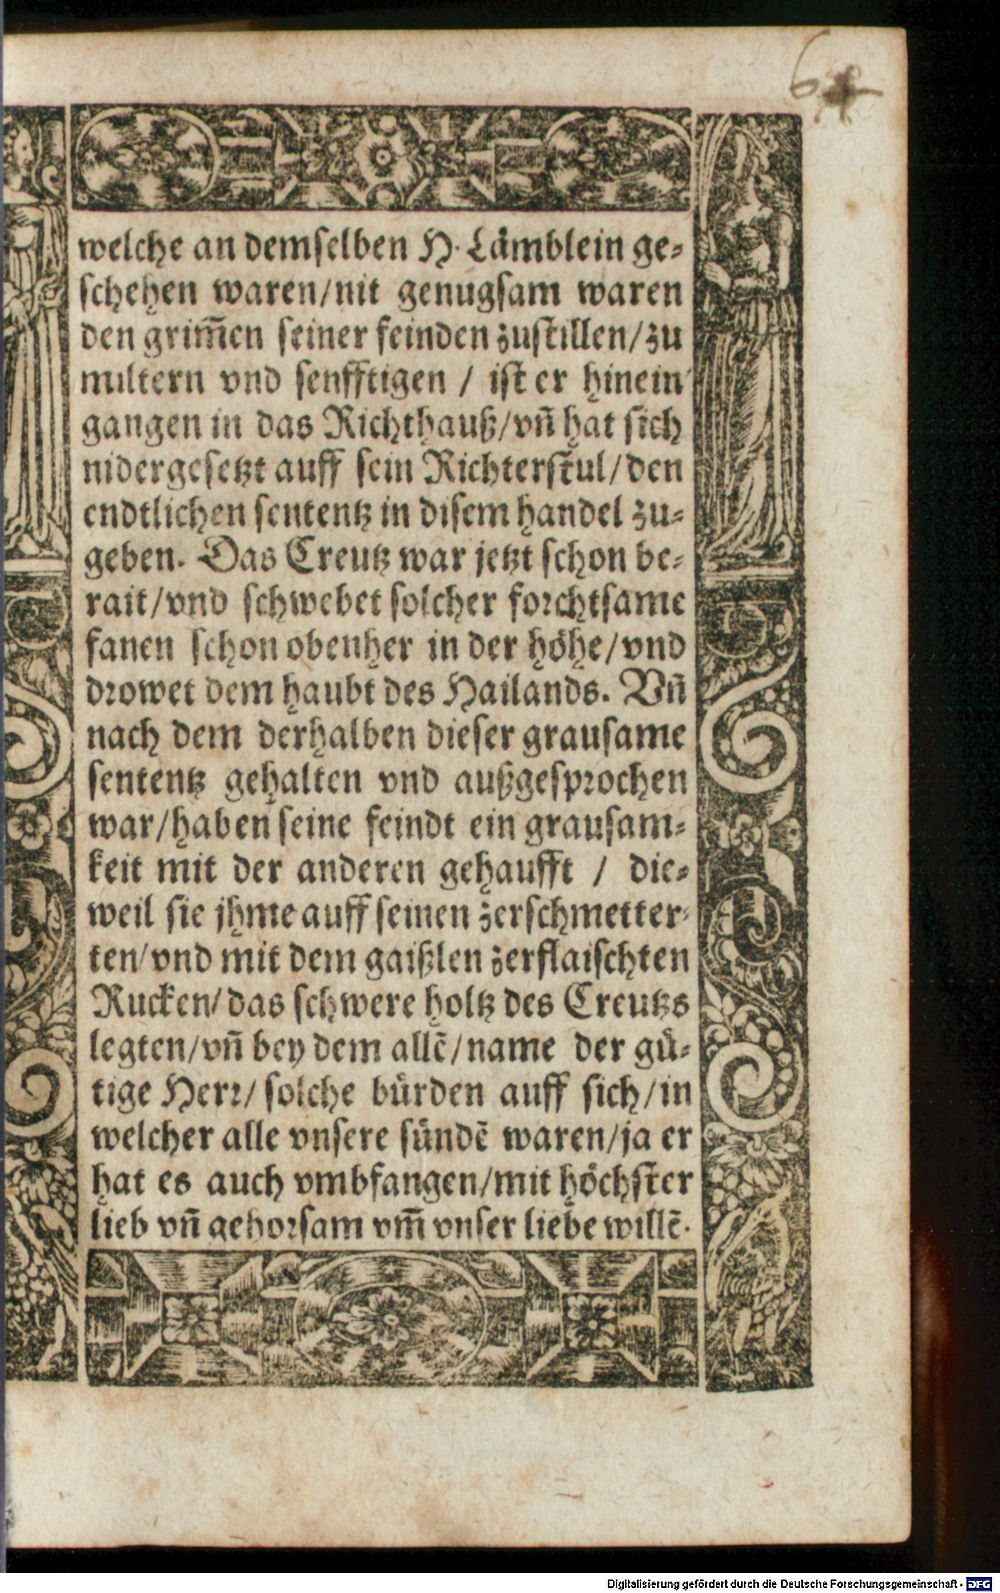 welche an demselben H. Lämblein ge-
schehen waren/nit genugsam waren
den grim̃en seiner feinden zustillen/zu
miltern vnd senfftigen / ist er hinein
gangen in das Richthauß/vñ hat sich
nidergesetzt auff sein Richterstul/den
endtlichen sententz in disem handel zu-
geben. Das Creutz war jetzt schon be-
rait/vnd schwebet solcher forchtsame
fanen schon obenher in der höhe/vnd
drowet dem haubt des Hailands. Vñ
nach dem derhalben dieser grausame
sententz gehalten vnd außgesprochen
war/haben seine feindt ein grausam-
keit mit der anderen gehaufft / die-
weil sie jhme auff seinen zerschmetter-
ten/vnd mit dem gaißlen zerflaischten
Rucken/das schwere holtz des Creutzs
legten/vñ bey dem allẽ/name der gü-
tige Herr/solche bürden auff sich/in
welcher alle vnsere sündẽ waren/ja er
hat es auch vmbfangen/mit höchster
lieb vñ gehorsam vm̃ vnser liebe willẽ.
Digitalisierung gefördert durch die Deutsche Forschungsgemeinschaft - DFG